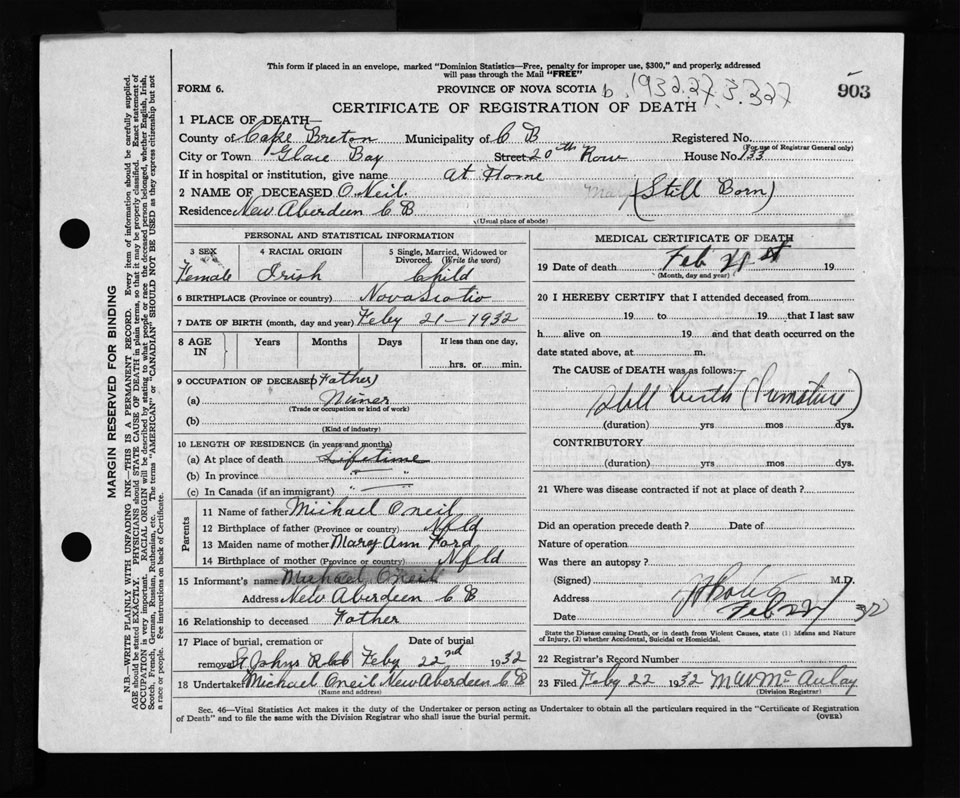 This form if placed in an envelope, marked "Dominion Statistics—Free, penalty for improper use, $300," and properly addressed
will pass through the Mail "FREE"
FORM 6. PROVINCE OF NOVA SCOTIA b. 1932.27.3.327
903
CERTIFICATE OF REGISTRATION OF DEATH
1 PLACE OF DEATH—
County of Cape Breton Municipality of C B Registered No.
(For use of Registrar General only)
City or Town Glace Bay Street 20th Row House No. 133
If in hospital or institution, give name at Home
2 NAME OF DECEASED O Neil (Still Born)
Residence New Aberdeen C B
(Usual place of abode)
PERSONAL AND STATISTICAL INFORMATION
3 SEX 4 RACIAL ORIGIN 5 Single, Married, Widowed or
Divorced. (Write the word)
Female Irish Child
6 BIRTHPLACE (Province or country) Nova Scotio
7 DATE OF BIRTH (month, day and year) Feby 21 — 1932
8 AGE IN Years Months Days If less than one day,
hrs. or min.
9 OCCUPATION OF DECEASED (Father)
(a) Miner
(Trade or occupation or kind of work)
(b)
(Kind of industry)
10 LENGTH OF RESIDENCE (in years and months)
(a) At place of death Lifetime
(b) In province " "
(c) In Canada (if an immigrant) " "
Parents
11 Name of father Michael Oneil
12 Birthplace of father (Province or country) Nfld
13 Maiden name of mother Mary Ann Ford
14 Birthplace of mother (Province or country) Nfld
15 Informant's name Michael Oneil
Address New Aberdeen C B
16 Relationship to deceased Father
17 Place of burial, cremation or Date of burial
removal St Johns Feby 22nd 1932
18 Undertaker Michael Oneil New Aberdeen C B
(Name and address)
MEDICAL CERTIFICATE OF DEATH
19 Date of death Feb 21st 19
(Month, day and year)
20 I HEREBY CERTIFY that I attended deceased from
19 to 19 that I last saw
h alive on 19 and that death occurred on the
date stated above, at m.
The CAUSE of DEATH was as follows:
Still birth (Premature)
(duration) yrs mos dys.
CONTRIBUTORY
(duration) yrs mos dys.
21 Where was disease contracted if not at place of death?
Did an operation precede death? Date of
Nature of operation
Was there an autopsy?
(Signed) M.D.
Address
Date 32
State the Disease causing Death, or in death from Violent Causes, state (1) Means and Nature
of Injury, (2) whether Accidental, Suicidal or Homicidal.
22 Registrar's Record Number
23 Filed Feby 22 1932 M W McAulay
(Division Registrar)
Sec. 46—Vital Statistics Act makes it the duty of the Undertaker or person acting as Undertaker to obtain all the particulars required in the "Certificate of Registration
of Death" and to file the same with the Division Registrar who shall issue the burial permit.
(OVER)
MARGIN RESERVED FOR BINDING
N.B.—WRITE PLAINLY WITH UNFADING INK—THIS IS A PERMANENT RECORD. Every item of information should be carefully supplied.
AGE should be stated EXACTLY. PHYSICIANS should STATE CAUSE OF DEATH in plain terms, so that it may be properly classified. Exact statement of
OCCUPATION is very important. RACIAL ORIGIN will be described by stating to what people or race the deceased person belonged, whether English, Irish,
Scotch, French, German, Russian, Ruthenian, etc. The terms "AMERICAN" or "CANADIAN" SHOULD NOT BE USED as they express citizenship but not
a race or people. See instructions on back of Certificate.